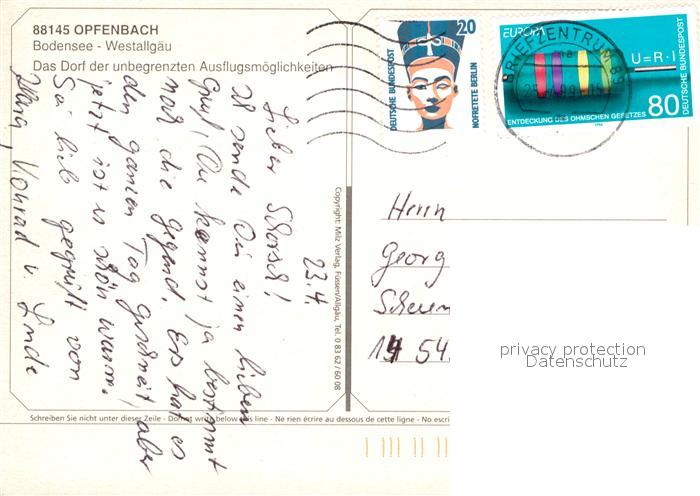 88145 OPFENBACH
Bodensee - Westallgäu
Das Dorf der unbegrenzten Ausflugsmöglichkeiten
23.4.
Lieber Schorsch!
Ich sende Dir einen lieben
Gruß, Du kennst ja bestimmt
noch die Gegend. Erst hat es
den ganzen Tag geschneit, aber
jetzt ist es schön warm.
Sei lieb gegrüßt von
Konrad u. Linde
Copyright: Milz Verlag, Füssen/Allgäu, Tel. 0 83 62 / 60 08
Schreiben Sie nicht unter dieser Zeile - Do not write below this line - Ne rien écrire au dessous de cette ligne - No escri
DEUTSCHE BUNDESPOST
20
NOFRETETE BERLIN
EUROPA
U=R·I
80
DEUTSCHE BUNDESPOST
ENTDECKUNG DES OHMSCHEN GESETZES
BRIEFZENTRUM 88
Herrn
Georg
54
privacy protection
Datenschutz